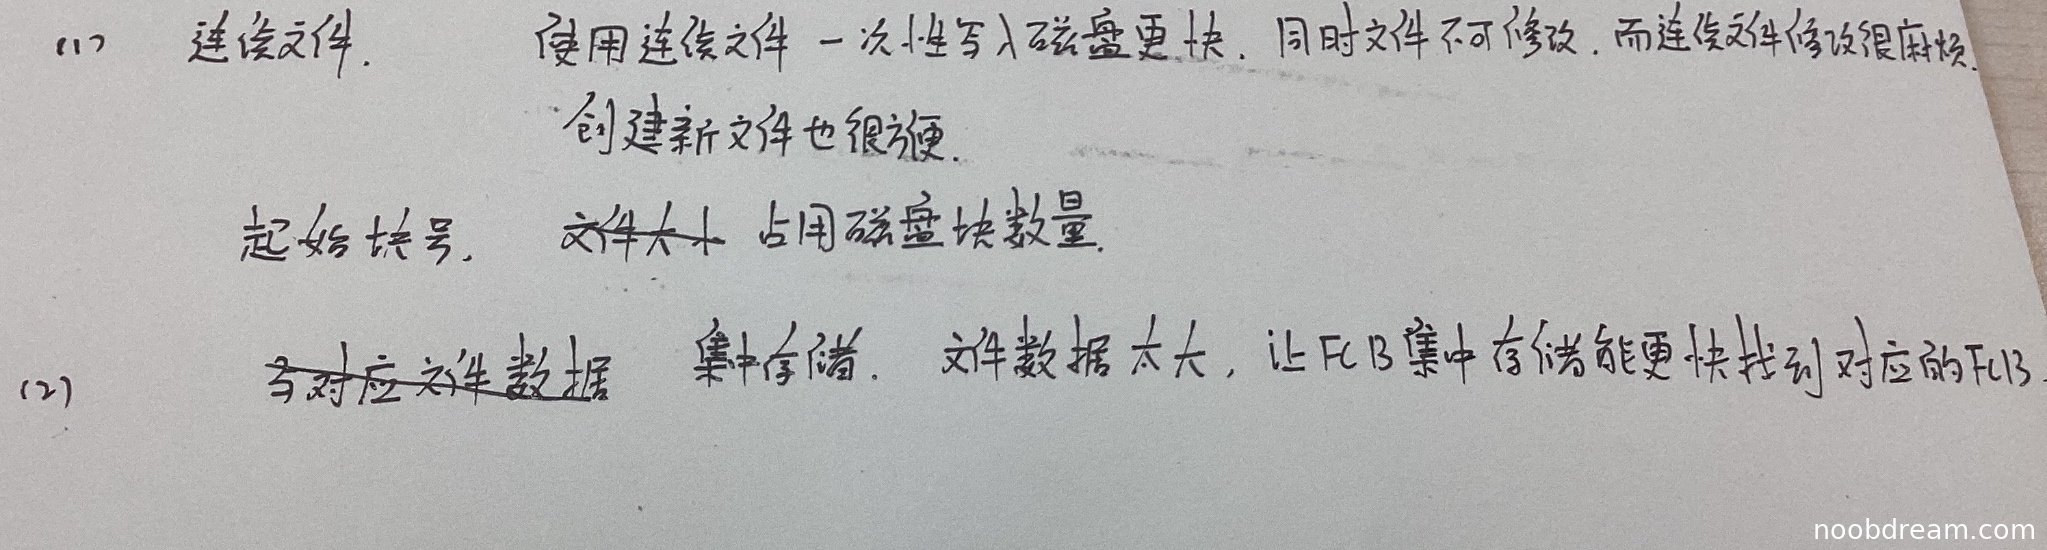 (1) 连续文件. 使用连续文件一次性写入磁盘更快. 同时文件不可修改. 而连续文件修改很麻烦.
创建新文件也很方便.
起始块号. 文件大小 占用磁盘块数量.
(2) 与对应文件数据 集中存储. 文件数据太大, 让FCB集中存储能更快找到对应的FCB.
noobdream.com